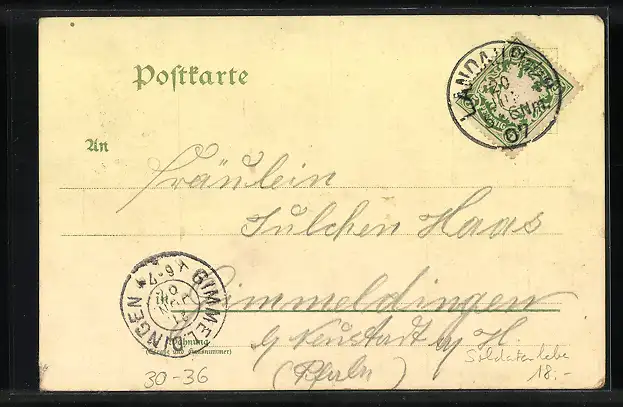 Postkarte
LANDAU
20
6 NM
07
An
Fräulein
Julchen Haas
Gimmeldingen
b/ Neustadt a/ H.
(Pfalz)
GIMMELDINGEN
6-7
Wohnung
(Straße und Hausnummer)
Soldatenliebe
30-36
18.-